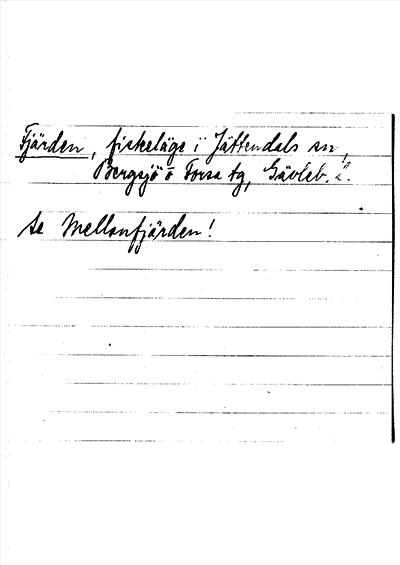 Fjärden, fiskeläge i Jättendals sn,
Bergsjö o Forsa tg, Gävleb. L.
se Mellanfjärden!